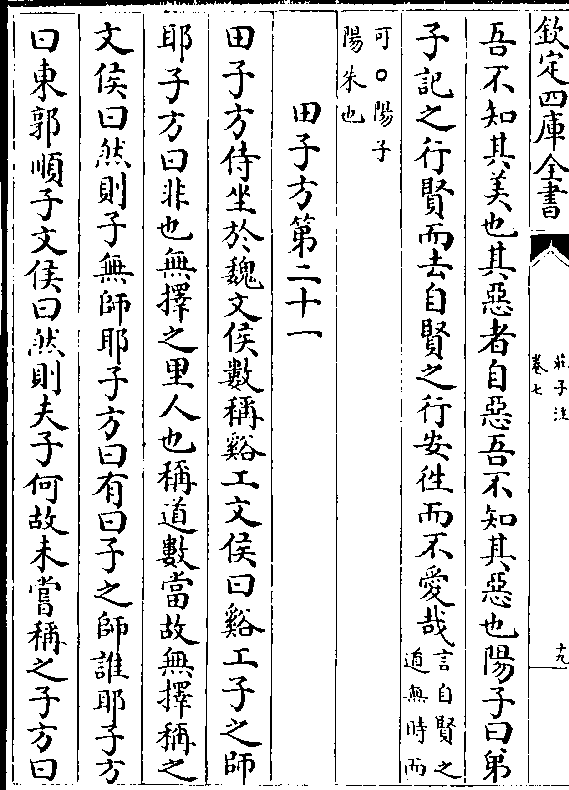 欽定四庫全書
莊子注
卷七
十九
吾不知其美也其惡者自惡吾不知其惡也陽子曰弟
子記之行賢而去自賢之行安徃而不愛哉言自賢之
道無時而
可○陽子
陽朱也
田子方第二十一
田子方侍坐於魏文侯數稱谿工文侯曰谿工子之師
耶子方曰非也無擇之里人也稱道數當故無擇稱之
文侯曰然則子無師耶子方曰有曰子之師誰耶子方
曰東郭順子文侯曰然則夫子何故未嘗稱之子方曰